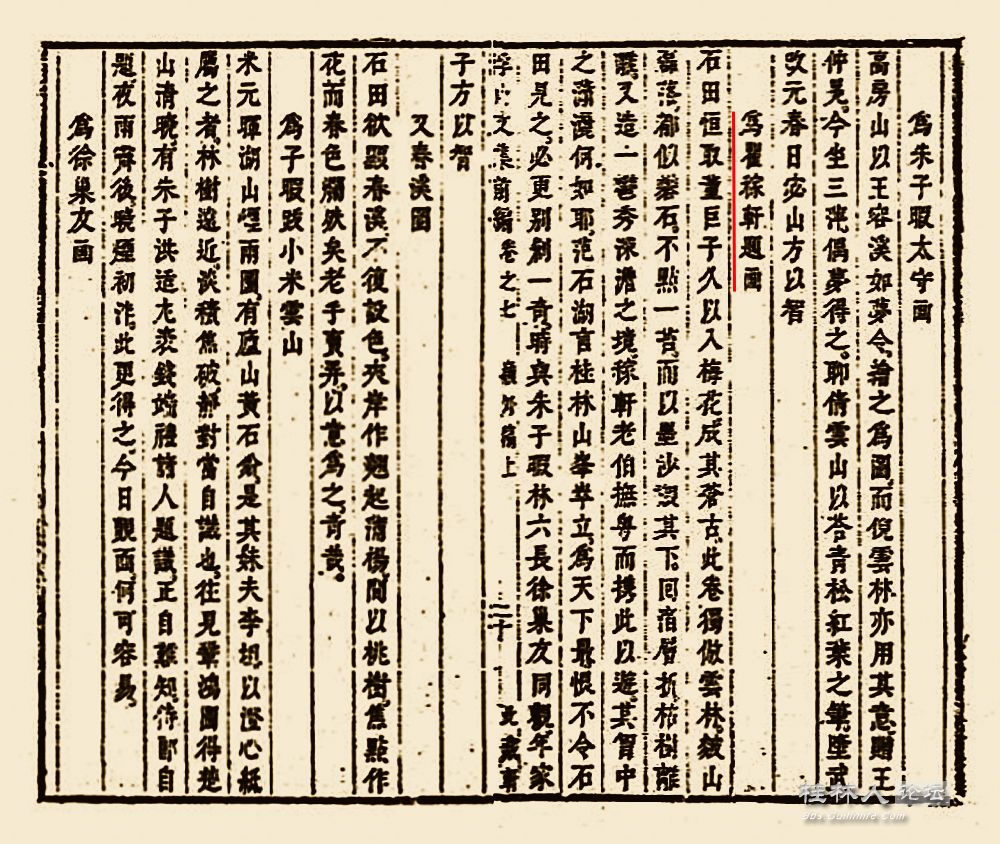 為朱子暇太守画
高房山以王容溪如夢令繪之為圖而倪雲林亦用其意贈王
仲晃今坐三萍偶夢得之聊倩雲山以荅青松紅葉之筆歷武
改元春日宓山方以智
為瞿稼軒題画
石田恒取董巨子久以入梅花成其蒼古此卷獨倣雲林皴山
落落都似蒙石不點一苔而以墨沙潑其下回㳷層折枯樹離
又造一鬱秀深澹之境稼軒老伯撫粤而携此以遊其胷中
之瀟灑何如耶范石湖言桂林山峯崒立為天下最恨不令石
田見之必更别創一奇時與朱子暇林六長徐巢友同觀年家
浮山文集前編卷之七 嶺外稿上 二十 此藏軒
子方以智
又春溪圖
石田欲毀春溪不復設色夾岸作翹起蒲楊間以桃樹焦點作
花而春色爛然矣老手賣弄以意為之奇哉
為子暇跋小米雲山
米元暉湖山煙雨圖有廬山黃石翁是其妹夫李坦以澄心紙
屬之者林樹遠近淡積焦破靜對當自識也往見輩鴻圖得楚
山清曉有朱子洪适尤袤錢端禮諸人題識正自難知侍郎自
題夜雨霽後曉煙初泮此更得之今日覿面何可容易
為徐巢友画
桂林人论坛
bbs.Guilinlife.com